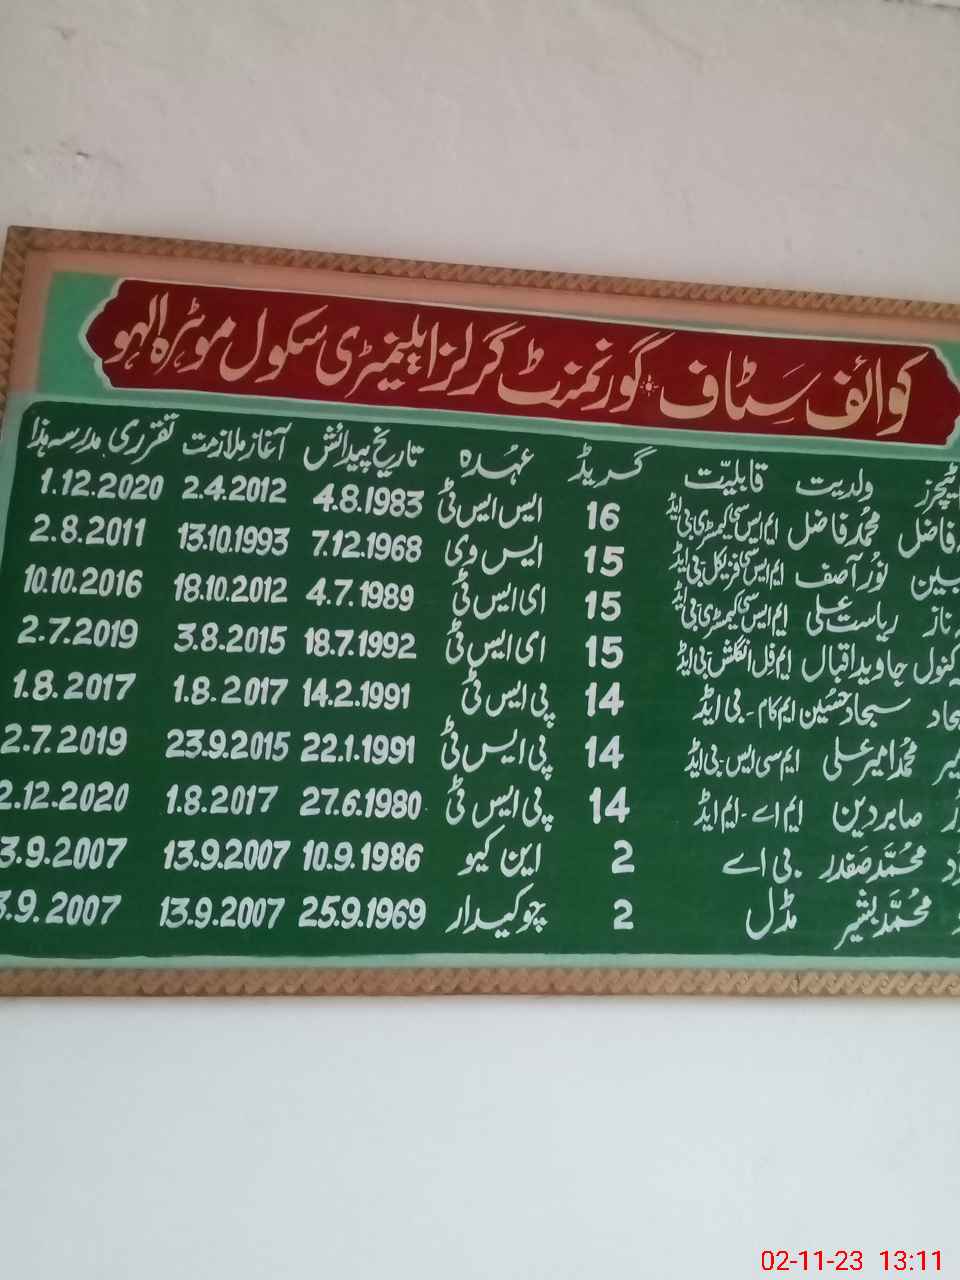 کوائف سٹاف گورنمنٹ گرلز ایلیمنٹری سکول موہڑہ الہو
ٹیچرز ولدیت قابلیّت گریڈ عہدہ تاریخ پیدائش آغاز ملازمت تقرری مدرسہ ہذا
فاضل محمد فاضل ایم ایس سی کیمسٹری بی ایڈ 16 ایس ایس ٹی 4.8.1983 2.4.2012 1.12.2020
نور آصف ایم ایس سی فزیکل بی ایڈ 15 ایس وی 7.12.1968 13.10.1993 2.8.2011
ناز ریاست علی ایم ایس سی کیمسٹری بی ایڈ 15 ای ایس ٹی 4.7.1989 18.10.2012 10.10.2016
کنول جاوید اقبال ایم فل انگلش بی ایڈ 15 ای ایس ٹی 18.7.1992 3.8.2015 2.7.2019
سجاد حسین ایم کام - بی ایڈ 14 پی ایس ٹی 14.2.1991 1.8.2017 1.8.2017
محمد امیر علی ایم سی ایس - بی ایڈ 14 پی ایس ٹی 22.1.1991 23.9.2015 2.7.2019
صابر دین ایم اے - ایم ایڈ 14 پی ایس ٹی 27.6.1980 1.8.2017 2.12.2020
محمّد صفدر بی اے 2 این کیو 10.9.1986 13.9.2007 3.9.2007
محمّد بشیر مڈل 2 چوکیدار 25.9.1969 13.9.2007 3.9.2007
02-11-23 13:11